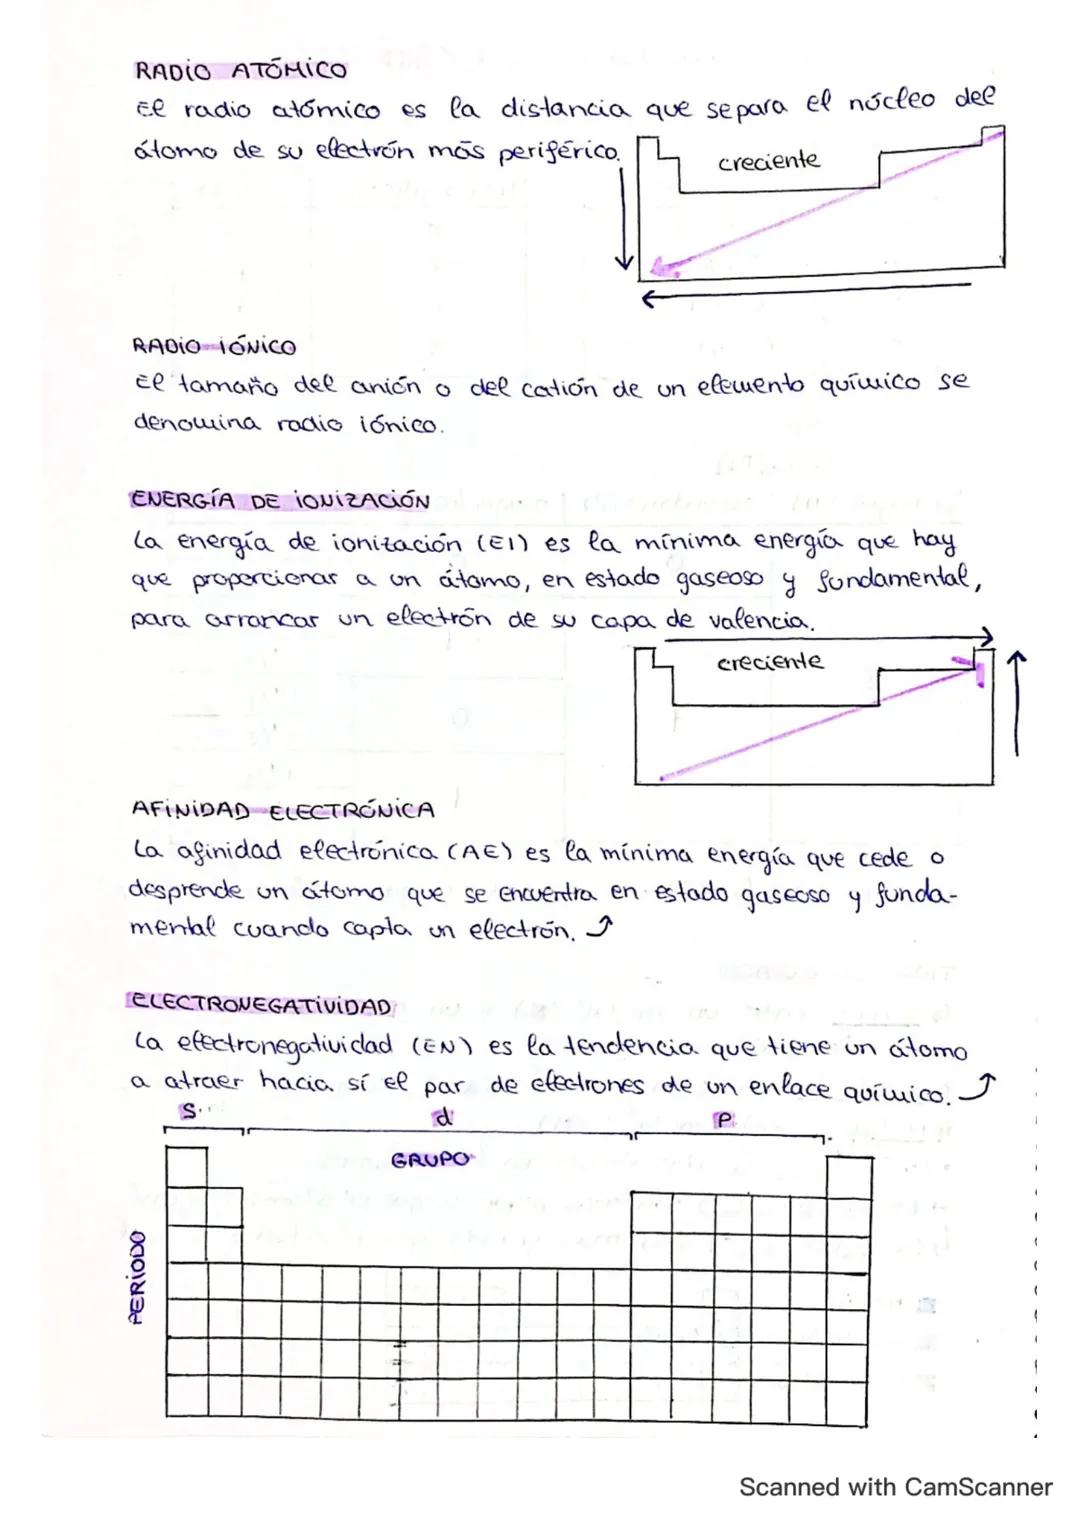 RADIO ATÓMICO
El radio atómico es la distancia que separa el núcleo del
átomo de su electrón más periférico.
creciente
RADIO IÓNICO
El tamaño del anión o del catión de un elemento químico se
denomina radio iónico.
ENERGÍA DE IONIZACIÓN
La energía de ionización (EI) es la mínima energía que hay
que proporcionar a un átomo, en estado gaseoso y fundamental,
para arrancar un electrón de su capa de valencia.
creciente
AFINIDAD ELECTRÓNICA
La afinidad electrónica (AE) es la mínima energía que cede o
desprende un átomo que se encuentra en estado gaseoso y funda-
mental cuando capta un electrón.
ELECTRONEGATIVIDAD
La electronegatividad (EN) es la tendencia que tiene un átomo
a atraer hacia sí el par de electrones de un enlace químico.
s d p
GRUPO
PERIODO
Scanned with CamScanner